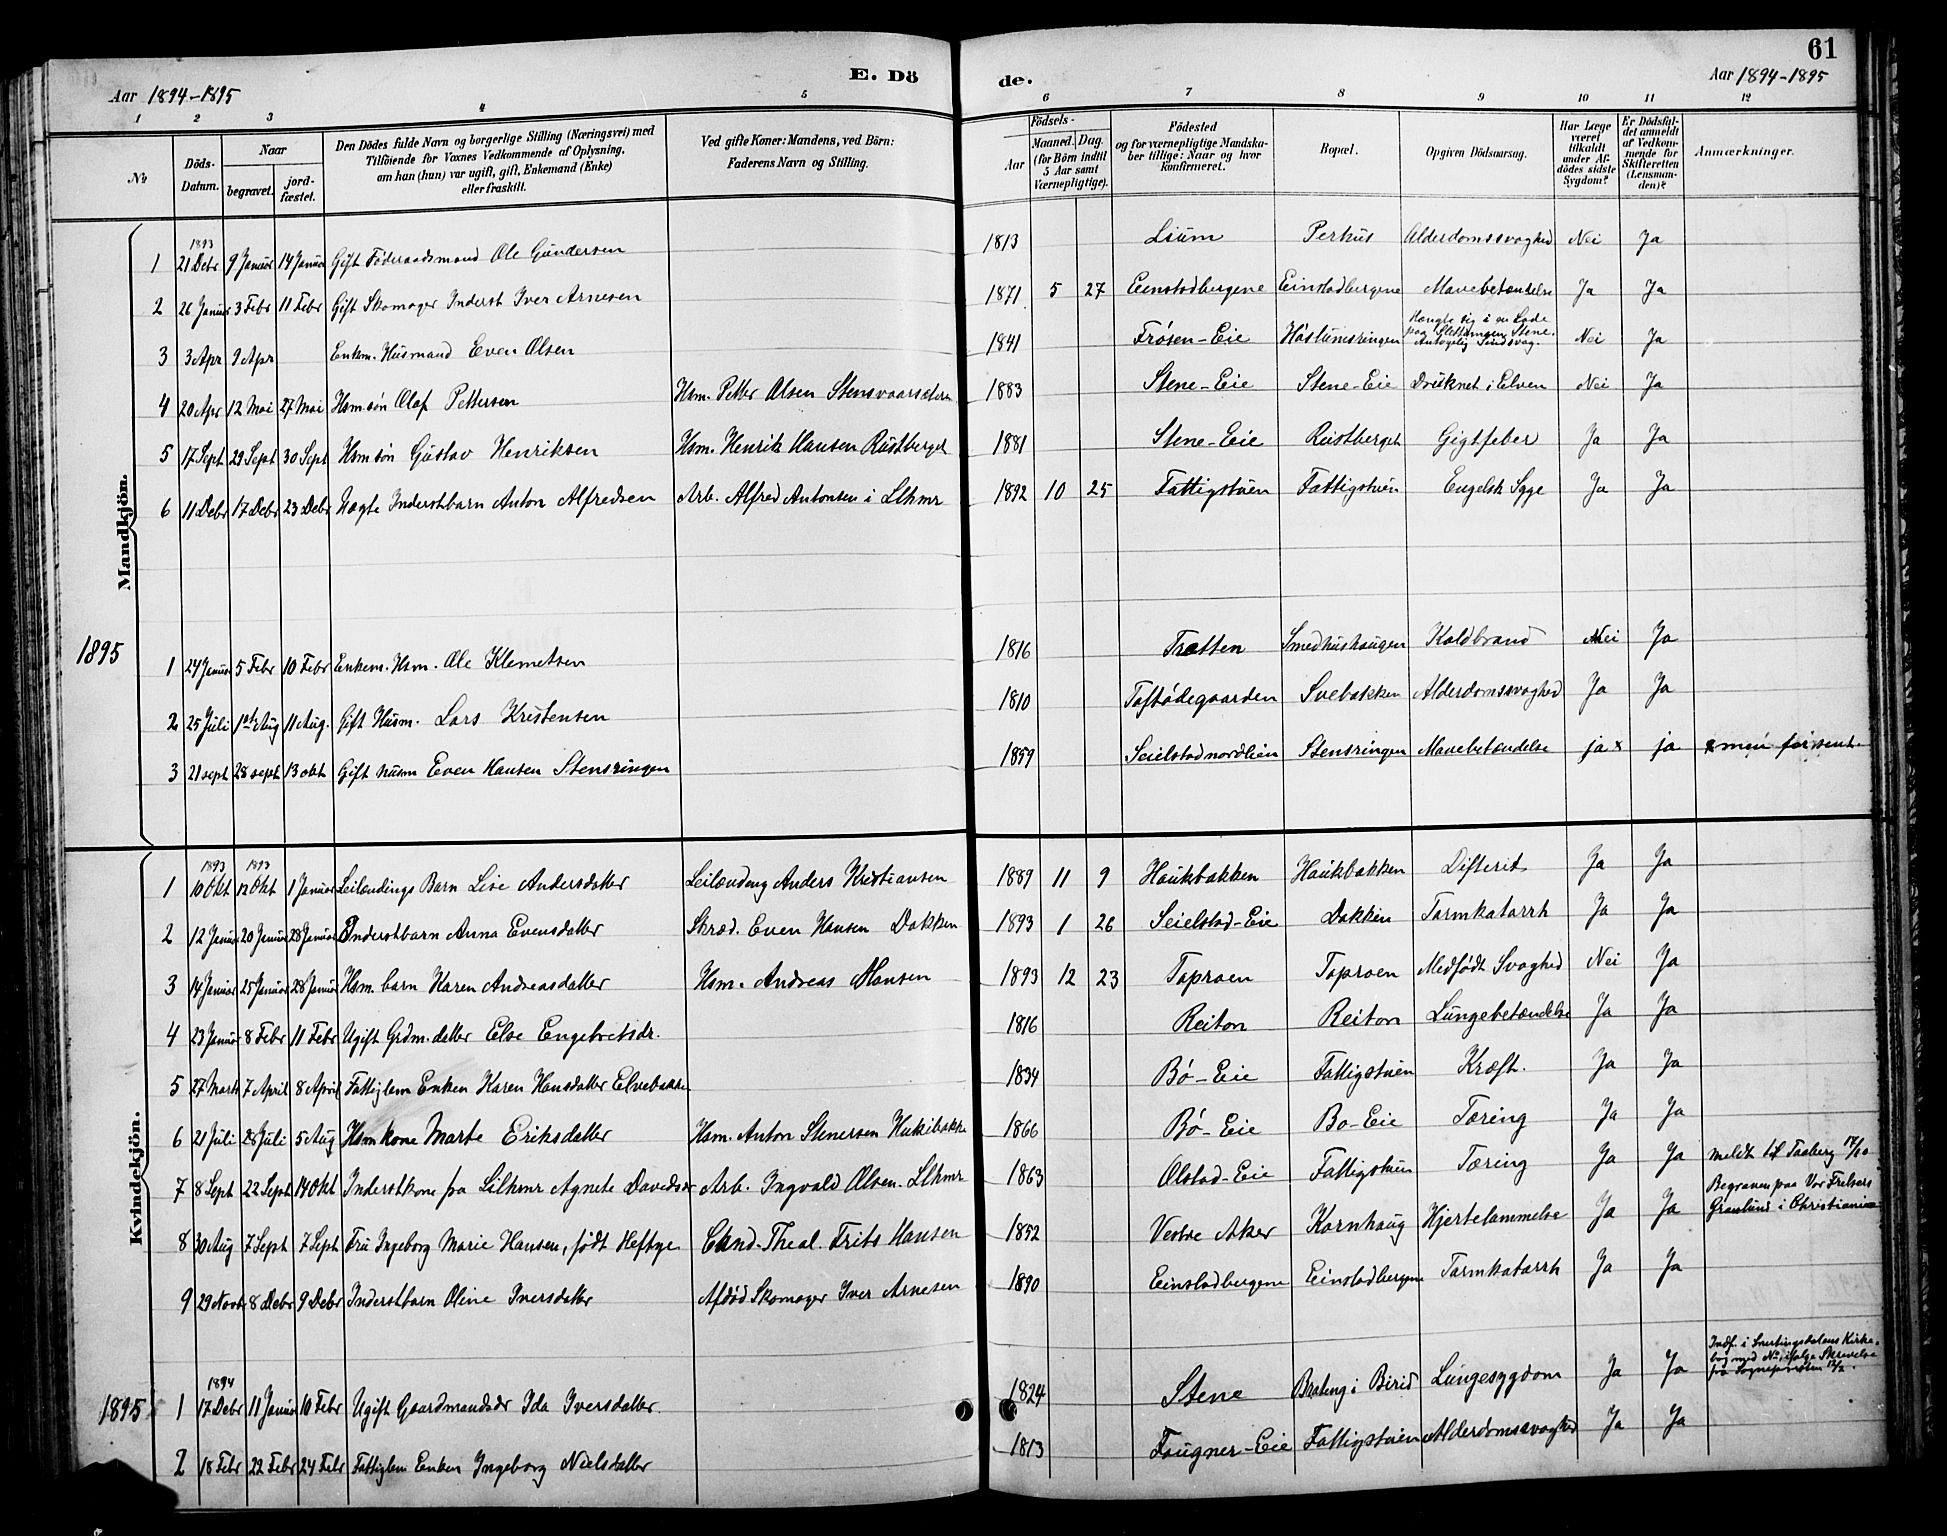 61
Aar 1894-1895
E. Dö
de.
Aar 1894-1895
1 2 3 4 5 6 7 8 9 10 11 12
No
Döds-Datum.
Naar
begravet.
jord-fæstet.
Den Dödes fulde Navn og borgerlige Stilling (Næringsvei) med
Tilföiende for Voxnes Vedkommende af Oplysning,
om han (hun) var ugift, gift, Enkemand (Enke)
eller fraskilt.
Ved gifte Koner: Mandens, ved Börn:
Faderens Navn og Stilling.
Födsels-
Aar
Maaned. Dag.
(for Börn indtil
5 Aar samt
Værnepligtige).
Födested
og for værnepligtige Mandska-
ber tillige: Naar og hvor
konfirmeret.
Bopæl.
Opgiven Dödsaarsag.
Har Læge
været
tilkaldt
under Af-
dödes sidste
Sygdom?
Er Dödsfal-
det anmeldt
af Vedkom-
mende for
Skifteretten
(Lensman-
den)?
Anmærkninger.
Mandkjön.
1 1893 21 Debr 9 Januar 14 Januar Gift Föderaadsmand Ole Gundersen 1813 Lium Perhus Alderdomssvaghed Nei Ja
2 26 Januar 3 Febr 11 Febr Gift Skomager Inderst Iver Arnesen 1871 5 27 Einstadbergene Einstadbergene Mavebetændelse Ja Ja
3 3 Apr 9 Apr Enkm. Husmand Even Olsen 1841 Frøsen-Eie Høstumsringen Hængte sig i en Lade paa Slettungen, Stene. Antagelig Sindssvag. Nei Ja
4 20 Apr 12 Mai 27 Mai Hsm søn Olaf Pettersen Hsm. Petter Olsen 1883 Stene-Eie Stene-Eie Druknet i Elven Nei Ja
5 17 Sept 29 Sept 30 Sept Hsm søn Gustav Henriksen Hsm. Henrik Hansen Rustberget 1881 Stene-Eie Rustberget Gigtfeber Ja Ja
6 11 Debr 17 Debr 23 Debr Uægte Inderstbarn Anton Alfredsen Arb. Alfred Antonsen i Llhmr 1892 10 25 Fattigstuen Fattigstuen Engelsk Syge Ja Ja
1895
1 24 Januar 5 Febr 10 Febr Enkem. Hsm. Ole Klemetsen 1816 Trætten Smedhushaugen Koldbrand Nei Ja
2 25 Juli 1ste Aug 11 Aug. Gift Husm. Lars Kristensen 1810 Toftødegaarden Svebakken Alderdomssvaghed Ja Ja
3 21 sept 28 sept 13 okt Gift husm Even Hansen Stensringen 1859 Seielstadnordlien Stensringen Mavebetændelse ja x ja x men for sent.
Kvindekjön.
1 1893 10 Okt 1893 12 Okt 1 Januar Leilændings Barn Lise Andersdatter Leilænding Anders Kristiansen 1889 11 9 Haukbakken Haukbakken Difterit Ja Ja
2 12 Januar 20 Januar 28 Januar Inderstbarn Anna Evensdatter Skræd. Even Hansen Dakken 1893 1 26 Seielstad-Eie Dakken Tarmkatarrh Ja Ja
3 14 Januar 25 Januar 28 Januar Hsm. barn Karen Andreasdatter Hsm. Andreas Hansen 1893 12 23 Toproen Toproen Medfødt Svaghed Nei Ja
4 23 Januar 8 Febr 11 Febr Ugift Grdm.datter Else Engebretsdr. 1816 Reiton Reiton Lungebetændelse Ja Ja
5 27 Marts 7 April 8 April Fattiglem Enken Karen Hansdatter Elvebakke 1834 Bø-Eie Fattigstuen Kræft. Ja Ja
6 21 Juli 28 Juli 5 Aug Hsm kone Marte Eriksdatter Hsm. Anton Stenersen 1866 Bø-Eie Bø-Eie Tæring Ja Ja
7 8 Sept 22 Sept 14 Okt Inderstkone fra Lilhmr Agnete Davidsdr Arb. Ingvald Olsen. Llhmr 1863 Olstad-Eie Fattigstuen Tæring Ja Ja meldt til Faaberg 17/10
8 30 Aug 7 Sept 7 Sept Fru Ingeborg Marie Hansen, født Heftye Cand. Theol. Frits Hansen 1852 Vestre Aker Kornhaug Hjertelammelse Ja Ja Begraven paa Vor Frelsers Gravlund i Christiania
9 29 Novbr 8 Debr 9 Debr Inderstbarn Oline Iversdatter Afdød Skomager Iver Arnesen 1890 Einstadbergene Einstadbergene Tarmkatarrh Ja Ja
1895
1 1894 17 Debr 11 Januar 10 Febr Ugift Gaardmandsdr Ida Iversdatter. 1824 Stene Brating i Birid Lungesygdom Ja Ja Indf. i Snertingsdalens Kirkebog med No, ifølge Skrivelse fra Sognepresten
2 18 Febr 22 Febr 24 Febr Fattiglem Enken Ingeborg Nielsdatter 1813 Fougner-Eie Fattigstuen Alderdomssvaghed Ja Ja